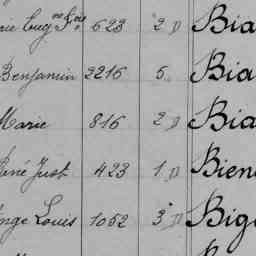 rie Eug ne Fois 623 2 D Bia
Benjamin 2216 5 Bia
Marie 816 2 D Bia
René Just 423 1 D Bien
nge Louis 1052 3 D Bige